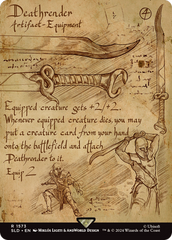 Deathrender
Artifact-Equipment
Equipped creature gets +2/+2.
Whenever equipped creature dies, you may
put a creature card from your hand
onto the battlefield and attach
Deathrender to it.
Equip 2
R 1573
SLD • EN
© Ubisoft
™ & © 2024 Wizards of the Coast